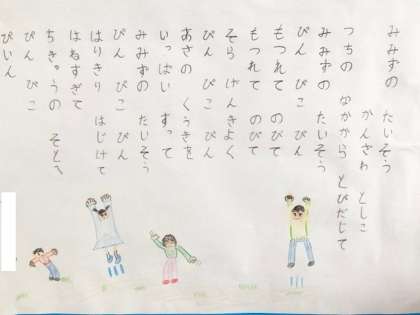 みみずの たいそう
かんざわ としこ
つちの なかから とびだして
みみずの たいそう
ぴん ぴこ ぴん
もつれて のびて
もつれて のびて
そら げんきよく
ぴん ぴこ ぴん
あさの くうきを
いっぱい すって
みみずの たいそう
ぴん ぴこ ぴん
はりきり はじけて
はねすぎて
ちきゅうの そとへ
ぴん ぴこ
ぴいん